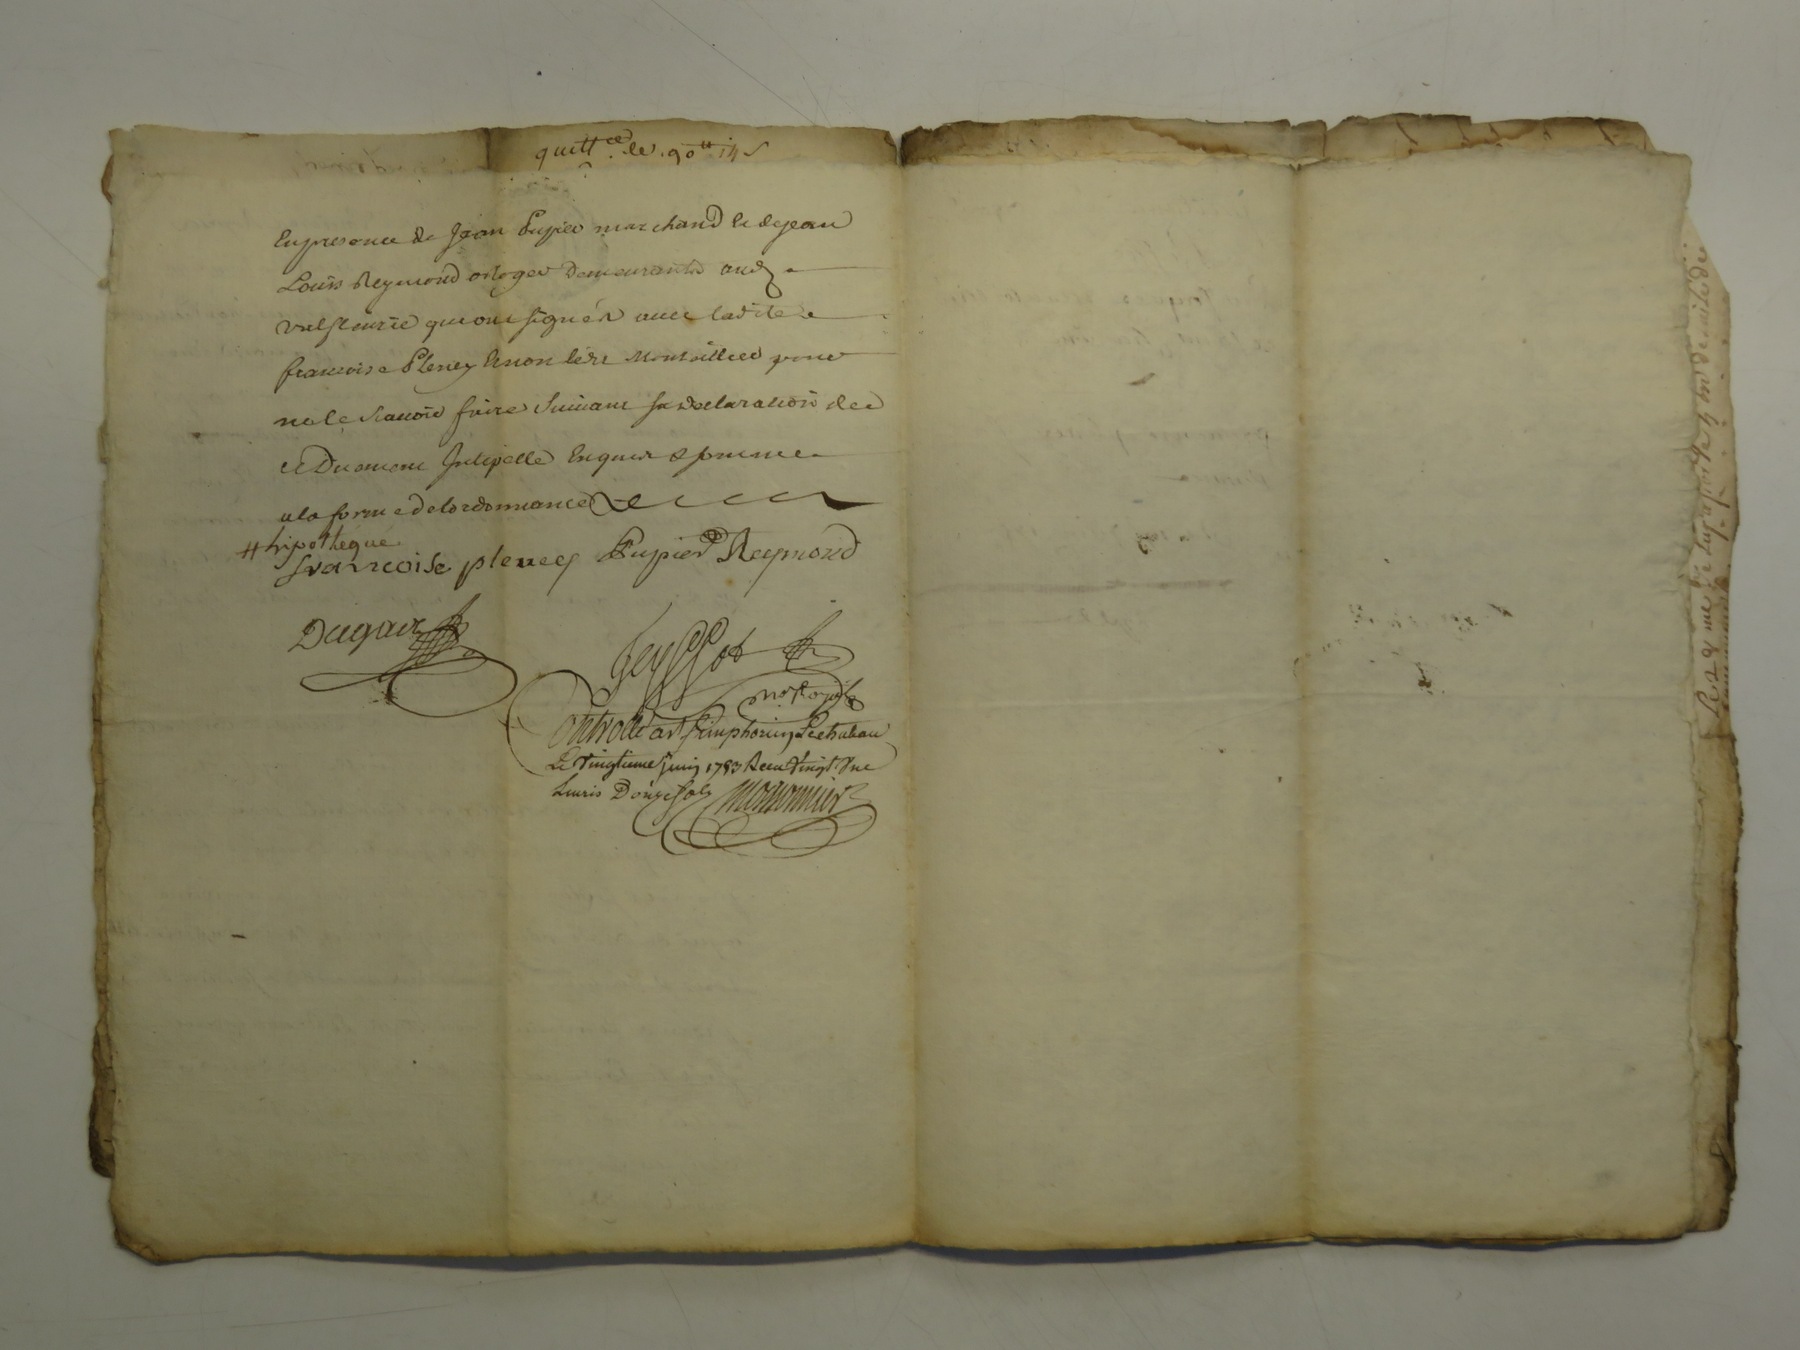 quittce le 90tt 14 s
En presence de Jean Pupier marchand et de Jean
Louis Reymond orloger demeurants aud
valfleurie qui ont signés avec ladite
francoise Pleney Et non led Montoillied pour
ne le scauoir faire suiuant sa declaration de
ce Duement Intepelle Enquis & somme
a la forme de lordonnance
# hipothéque
francoise pleney Pupier Reymond
Dugair
Peyssot
not Royal
Controllé a st simphorien Le chateau
Le vingtieme juin 1783 Recu vingt une
Liures Douze sols